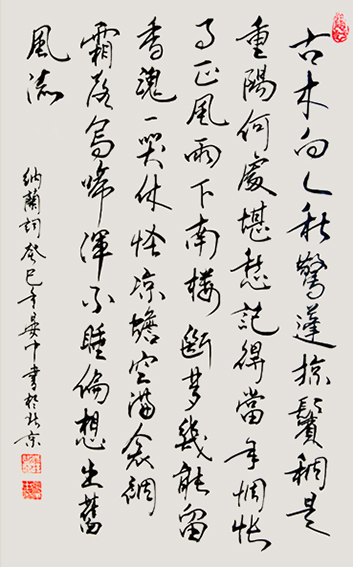 古木向人秋驚蓬掠鬢稠是
重陽何處堪愁記得當年惆悵
事正風雨下南樓斷夢幾能留
香魂一哭休怪涼蟾空滿衾裯
霜落烏啼渾不睡偏想出舊
風流
納蘭詞癸巳年晏中書於北京